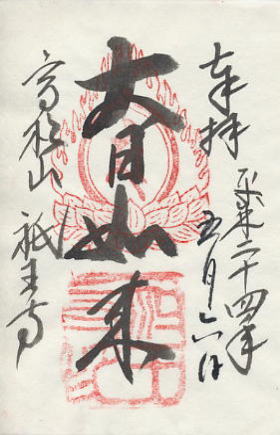 奉拝
平成二十四年
五月六日
大日如来
高松山
祇王寺